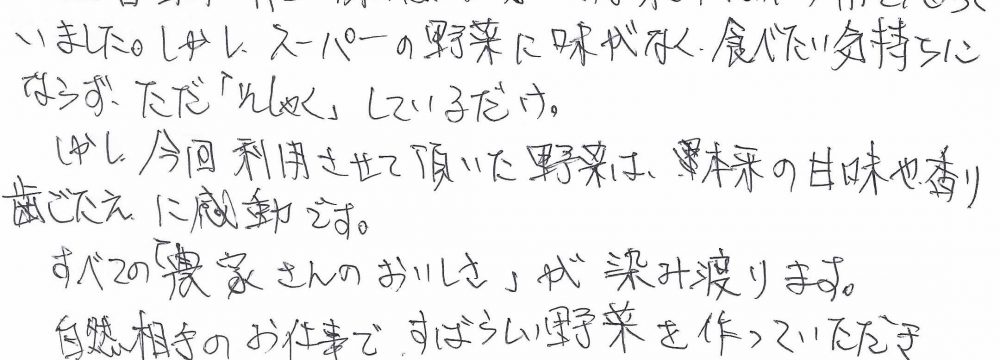 いました。しかし、スーパーの野菜に味がなく、食べたい気持ちに
ならず、ただ「そしゃく」しているだけ。
しかし、今回利用させて頂いた野菜は、本来の甘味や香り
歯ごたえに感動です。
すべての「農家さんのおいしさ」が染み渡ります。
自然相手のお仕事ですばらしい野菜を作っていただき